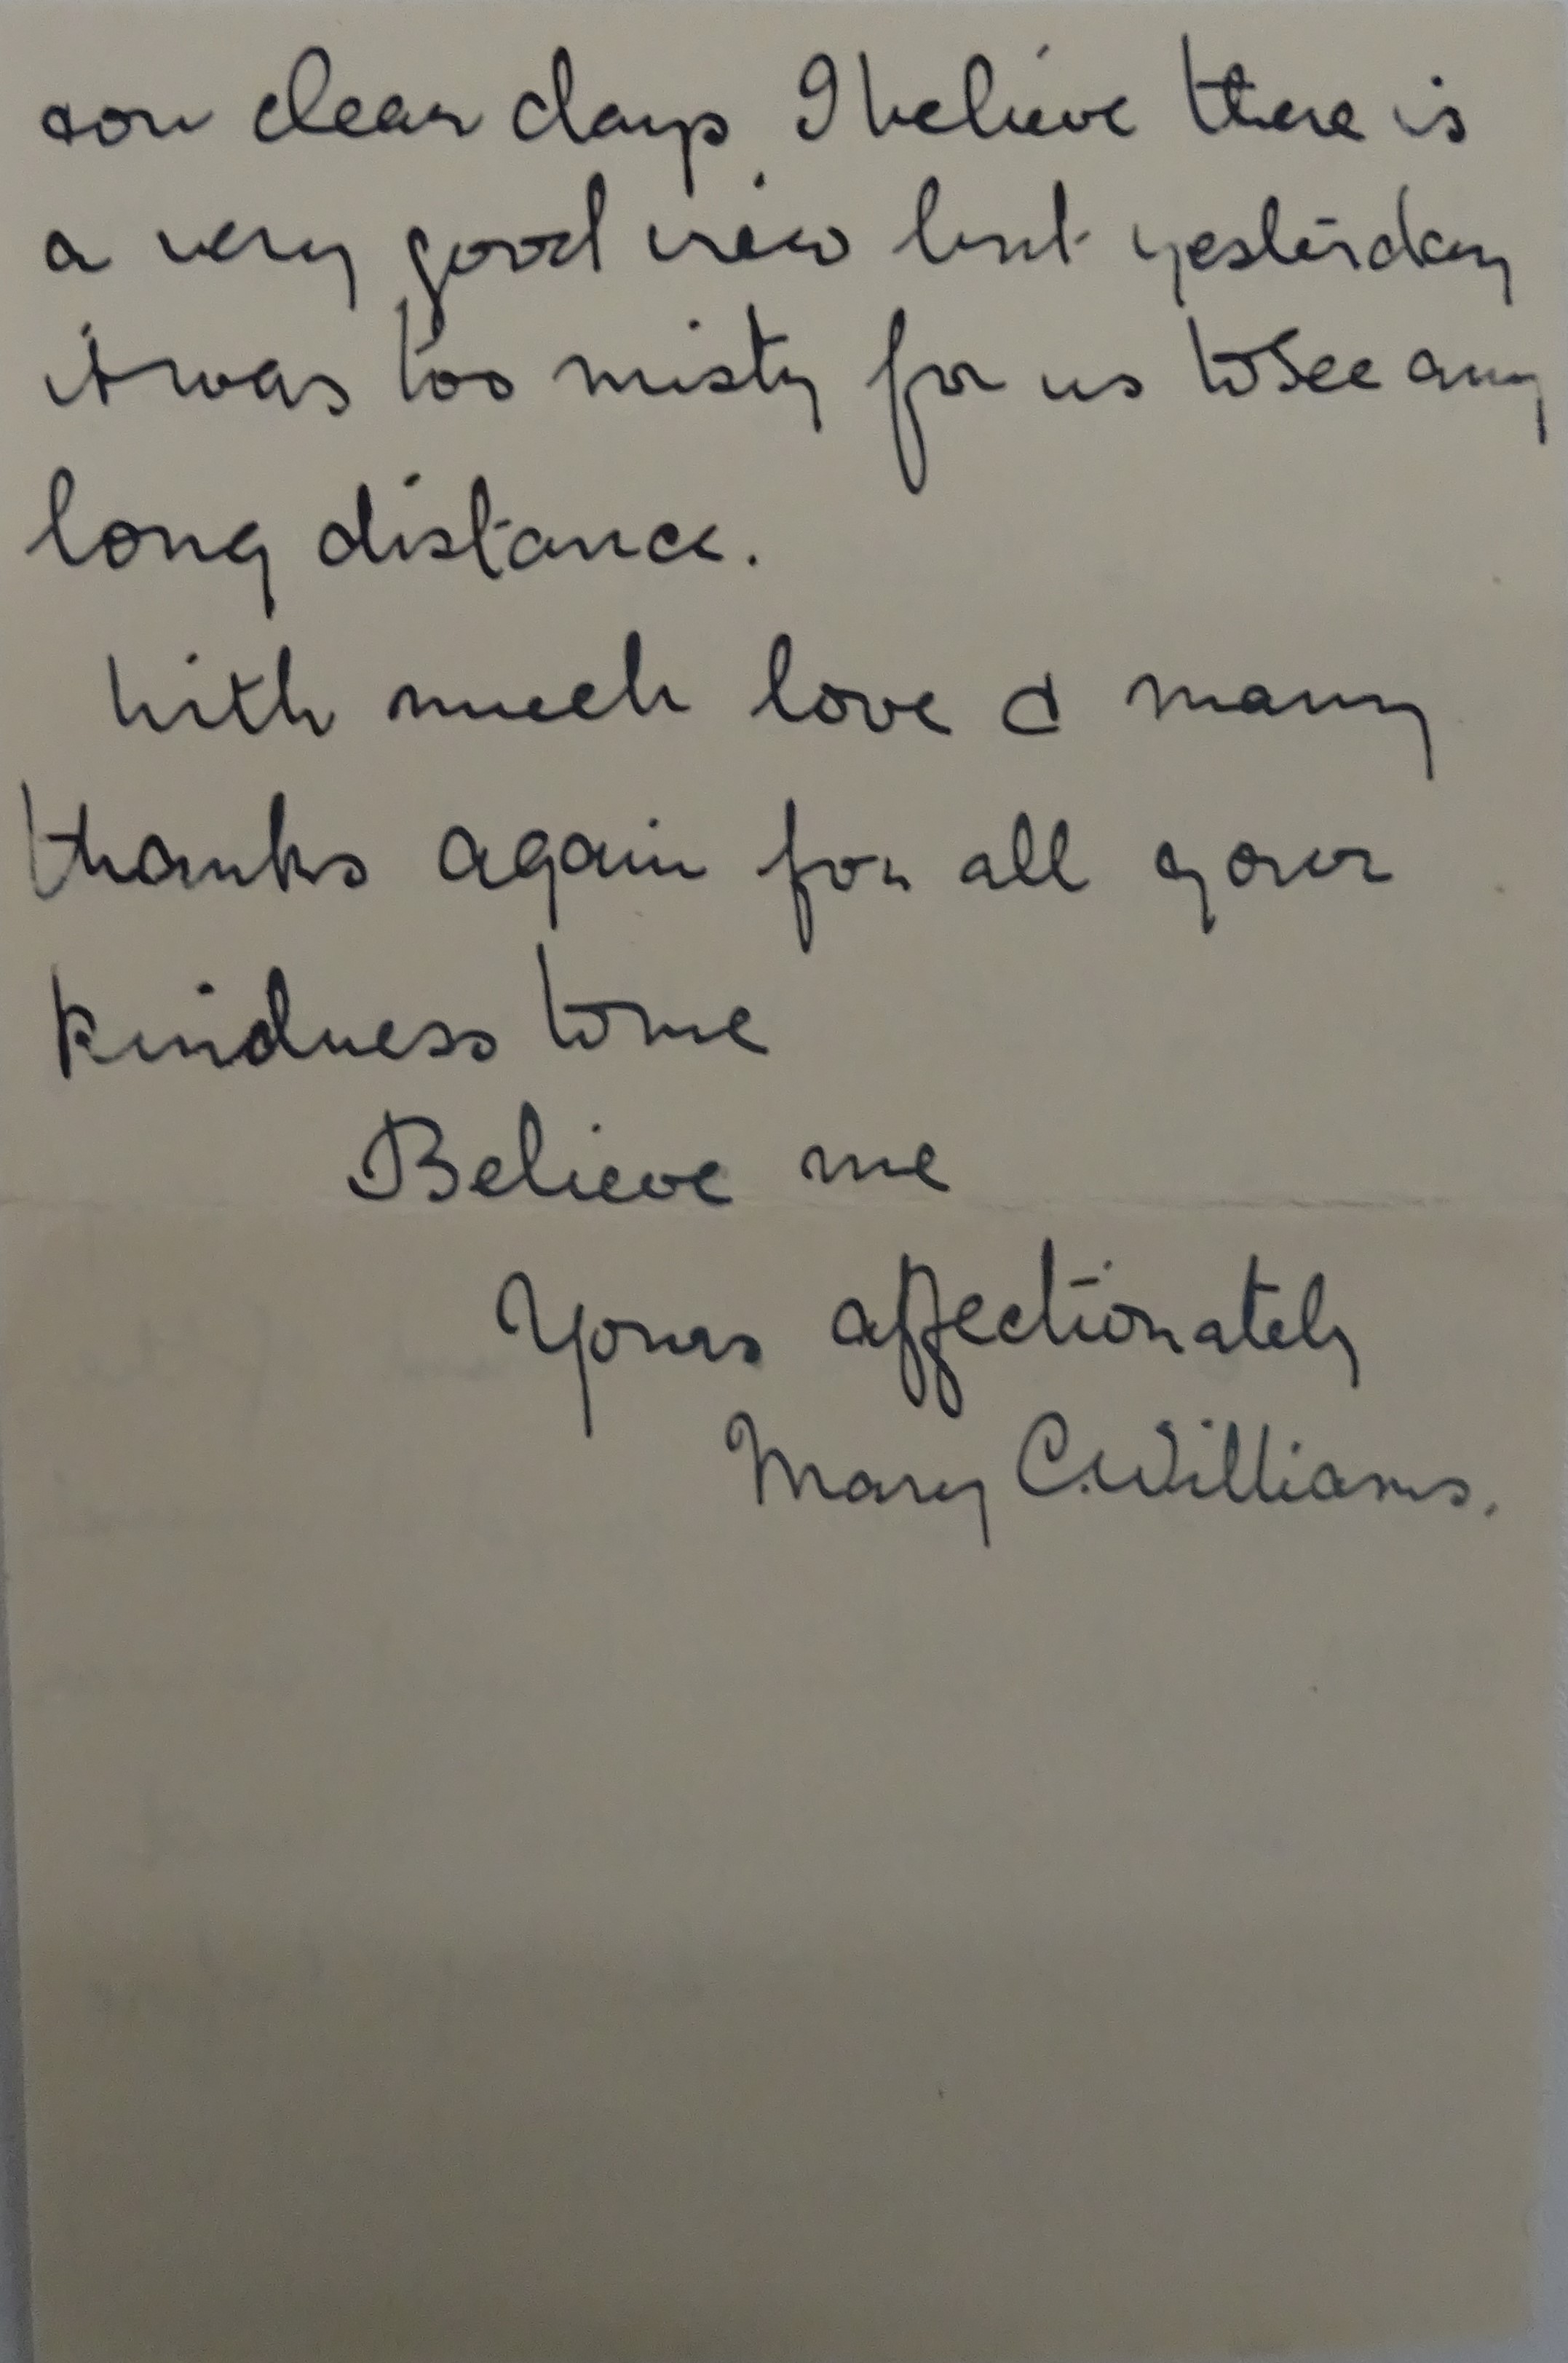 & on clear days I believe there is
a very good view but yesterday
it was too misty for us to see any
long distance.
With much love & many
thanks again for all your
kindness to me
Believe me
Yours affectionately
Mary C. Williams.